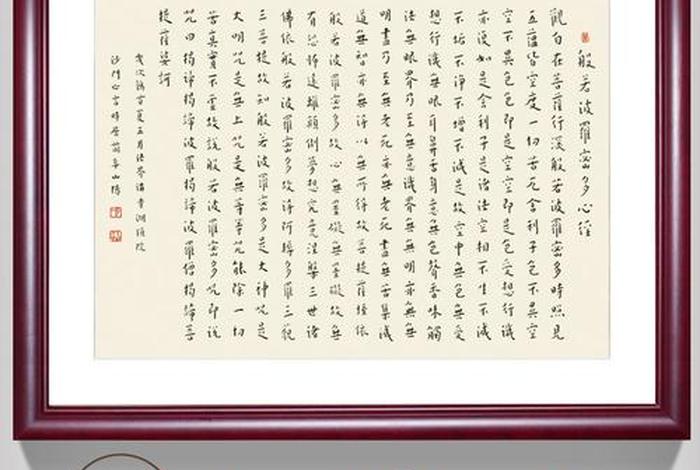 般若波羅密多心經
觀自在菩薩行深般若波羅密多時照見
五蘊皆空度一切苦厄舍利子色不異空
空不異色色即是空空即是色受想行識
亦復如是舍利子是諸法空相不生不滅
不垢不淨不增不減是故空中無色無受
想行識無眼耳鼻舌身意無色聲香味觸
法無眼界乃至無意識界無無明亦無無
明盡乃至無老死亦無老死盡無苦集滅
道無智亦無得以無所得故菩提薩埵依
般若波羅密多故心無罣礙無罣礙故無
有恐怖遠離顛倒夢想究竟涅槃三世諸
佛依般若波羅密多故得阿耨多羅三藐
三菩提故知般若波羅密多是大神咒是
大明咒是無上咒是無等等咒能除一切
苦真實不虛故說般若波羅密多咒即說
咒曰揭諦揭諦波羅揭諦波羅僧揭諦菩
提薩婆訶
歲次夏五月
沙門